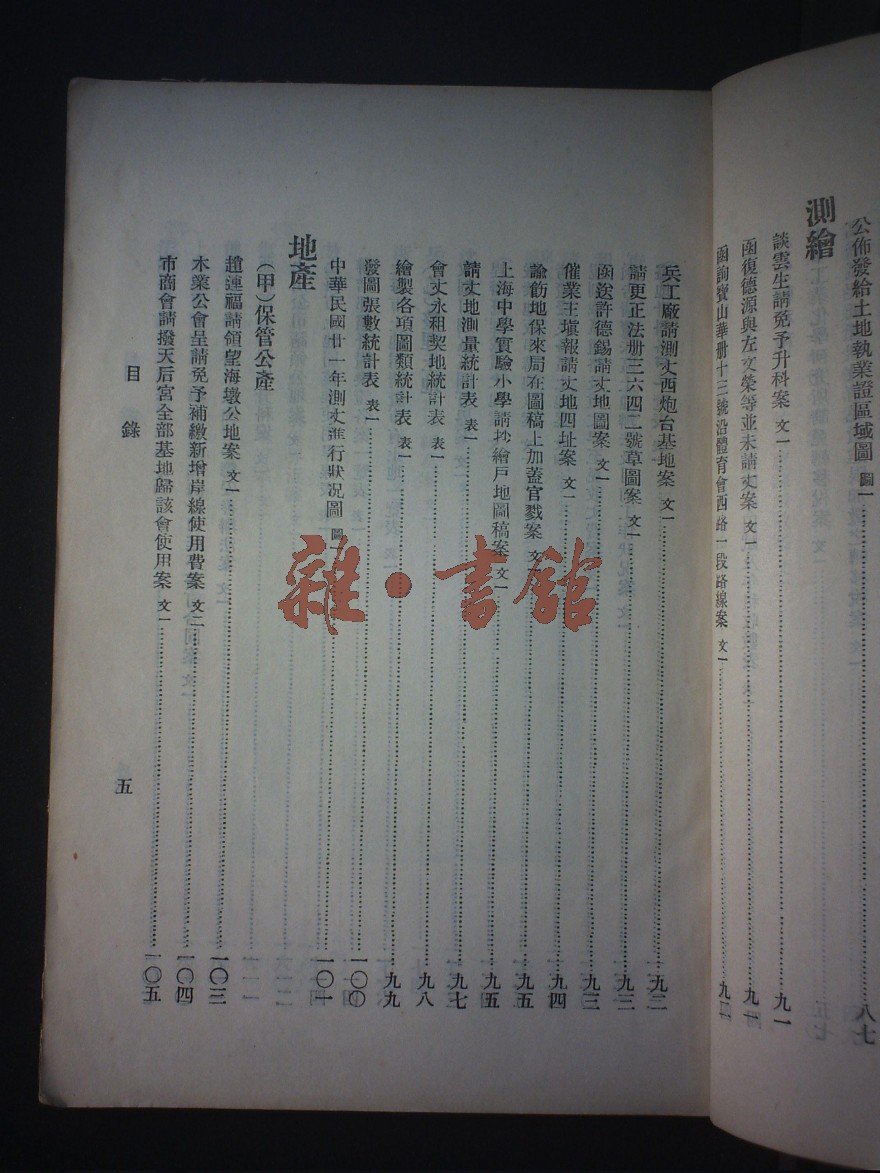 公佈發給土地執業證區域圖 圖一 八七
測繪
談雲生請免予升科案 文一 九一
函復德源與左文榮等並未請丈案 文一 九一
函詢寶山華册十三號沿體育會西路一段路線案 文一
兵工廠請測丈西炮台基地案 文一 九二
請更正法册三六四二號草圖案 文一 九三
函送許德錫請丈地圖案 文一 九三
催業主塡報請丈地四址案 文一 九四
諭飭地保來局在圖稿上加蓋官戳案 文一 九五
上海中學實驗小學請抄繪戶地圖稿案 文一 九五
請丈地測量統計表 表一 九七
會丈永租契地統計表 表一 九八
繪製各項圖類統計表 表一 九九
發圖張數統計表 表一 一〇〇
中華民國廿一年測丈進行狀況圖 圖一 一〇一
地產
(甲)保管公產
趙連福請領望海墩公地案 文一 一〇三
木業公會呈請免予補繳新增岸線使用費案 文二 一〇四
市商會請撥天后宮全部基地歸該會使用案 文一 一〇五
目錄
五
雜·書館